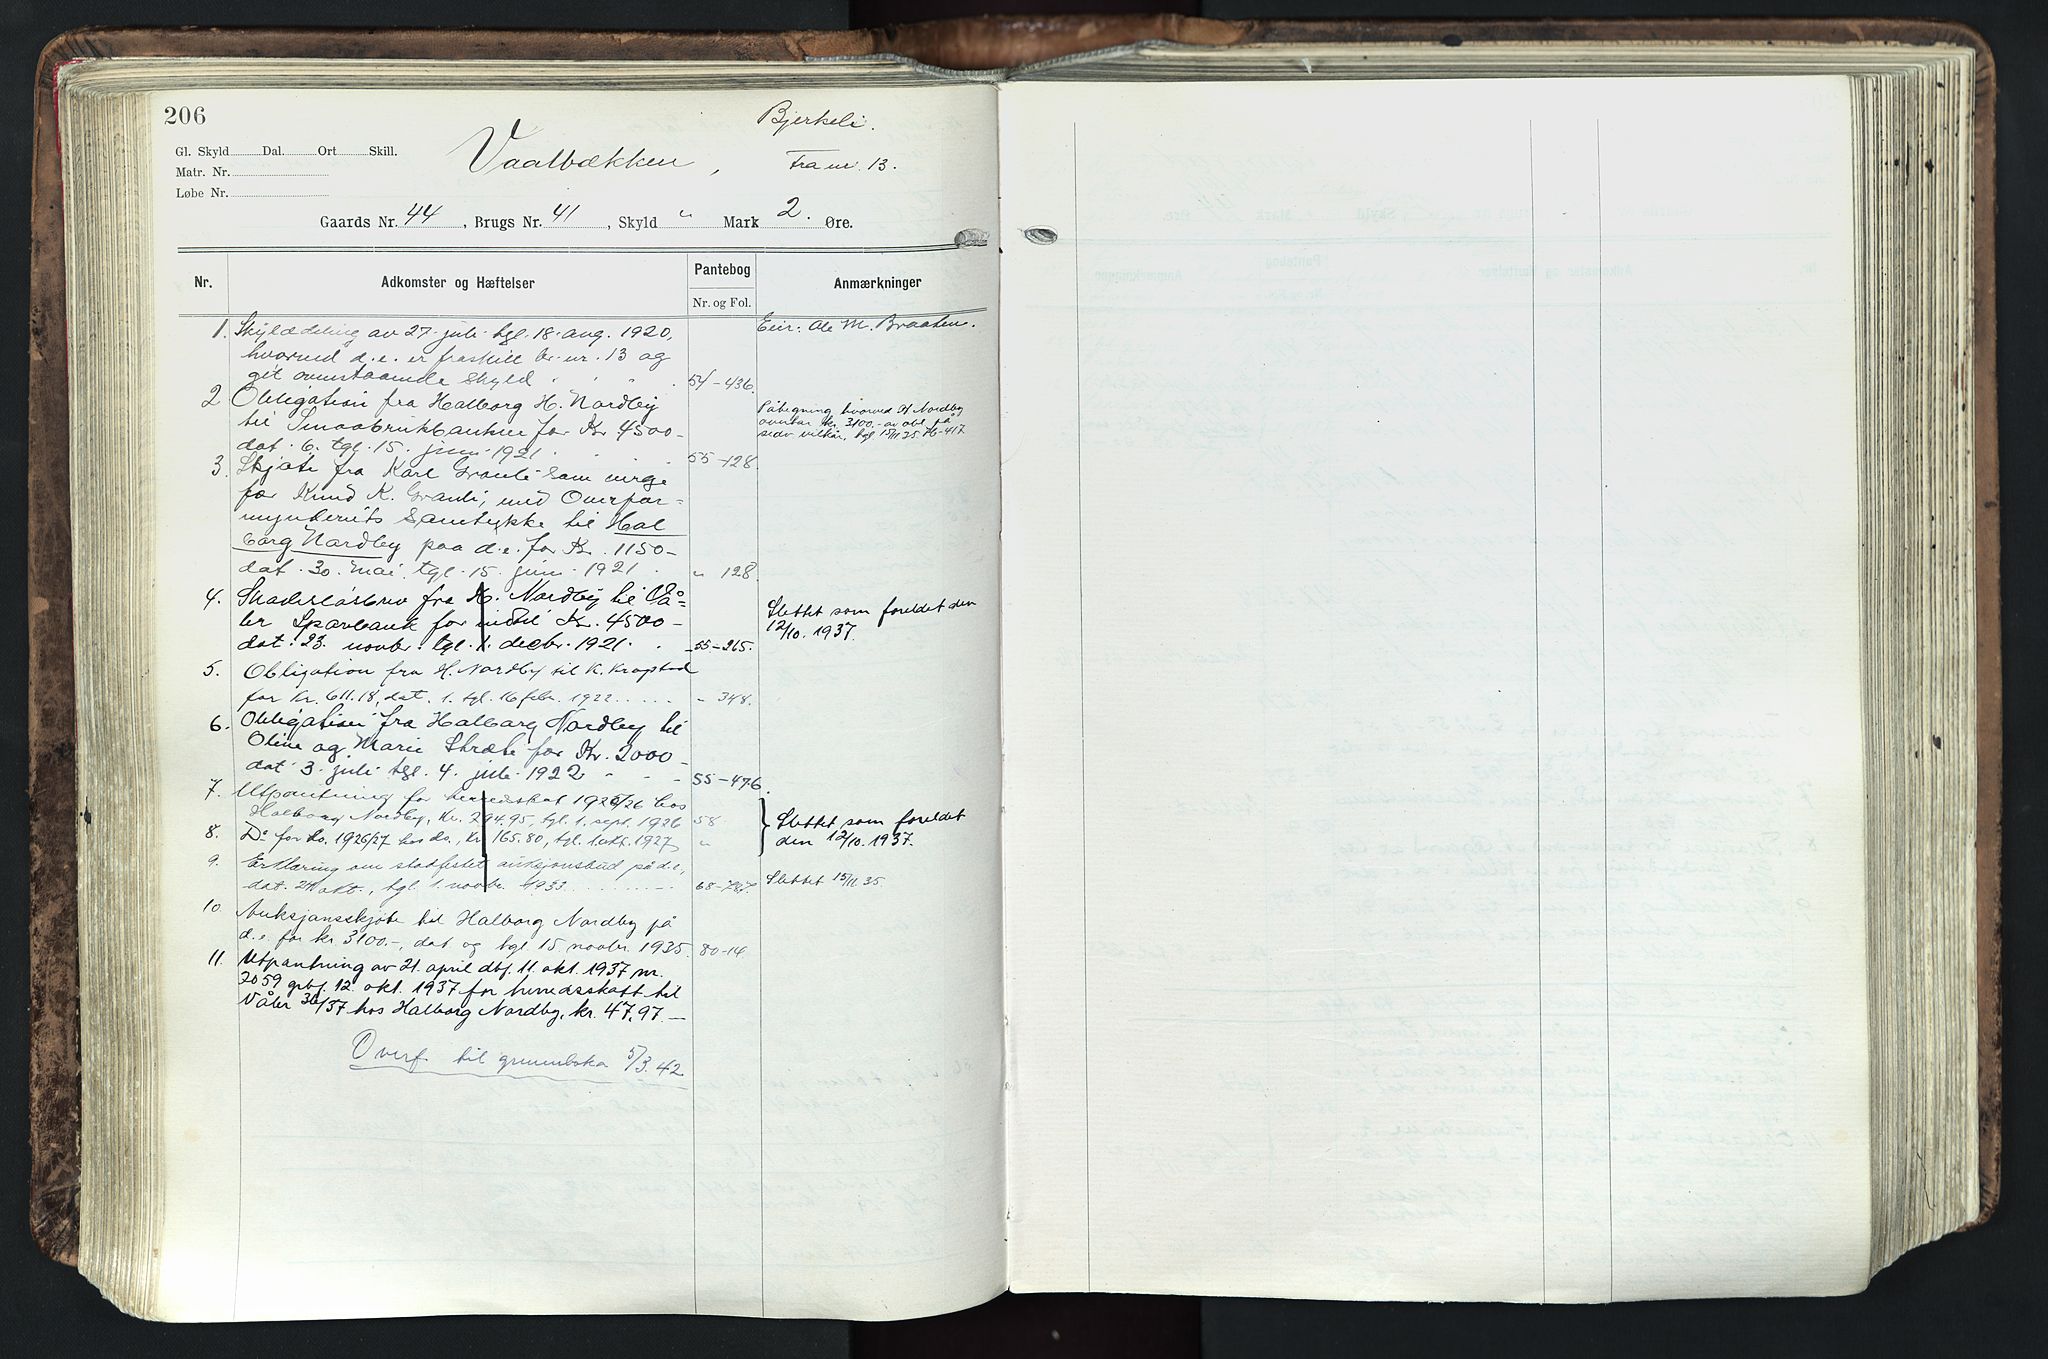 206
Bjerkeli.
Gl. Skyld Dal. Ort Skill.
Vaalbækken, Fra nr. 13.
Matr. Nr.
Løbe Nr.
Gaards Nr. 44, Brugs Nr. 41, Skyld " Mark 2. Øre.
Nr. Adkomster og Hæftelser Pantebog Anmærkninger
Nr. og Fol.
1. Skylddeling av 27. juli tgl. 18. aug. 1920, Eier: Ole M. Braaten.
hvorved d.e. er fraskilt br. nr. 13 og
git ovenstaaende skyld 54-436
2 Obligation fra Halborg H. Nordby
til Smaabrukbanken for Kr 4500-
dat. 6. tgl. 15. juni 1921 55-128
Påtegning hvorved H Nordby
overtar kr. 3100.- av obl. på
vilkår, tgl 15/11 35 76-417
3. Skjøte fra Karl Granli som verge
for Knud K. Granli, med Overfor-
mynderiets samtykke til Hal
borg Nordby paa d.e. for Kr. 1150-
dat. 30. mai tgl. 15. juni 1921. " 128
4. Skadesløsbrev fra H. Nordby til Vå-
ler Sparebank for indtil Kr. 4500-
dat. 23. novbr. tgl. 1. decbr. 1921. 55-265.
Slettet som foreldet den
12/10. 1937.
5. Obligation fra H. Nordby til K. Kropstad
for Kr. 611.18, dat. 1. tgl. 16 febr. 1922 " 348.
6. Obligation fra Halborg Nordby til
Oline og Marie Stræte for Kr. 2000-
dat 3. juli tgl. 4. juli 1922 55-476.
7. Utpantning for herredskat 1925/26 hos
Halborg Nordby, Kr. 294.95, tgl. 1. sept. 1926 58
8. Do for do. 1926/27 hos do., Kr. 165.80, tgl. 1. okt. 1927 "
Slettet som foreldet
den 12/10. 1937.
9. Erklæring om stadfestet auksjonsbud på d.e,
dat. 24 okt., tgl. 1. novbr. 1933 68-787. Slettet 15/11. 35.
10. Auksjonsskjøte til Halborg Nordby på
d.e. for kr. 3100.-, dat og tgl. 15 novbr. 1935. 80-14
11. Utpantning av 21. april dbf. 11. okt. 1937 nr.
2059 grbf. 12. okt. 1937 for herredsskatt til
Våler 36/37 hos Halborg Nordby, kr. 47,97.-
Overf. til grunnboka 5/3. 42